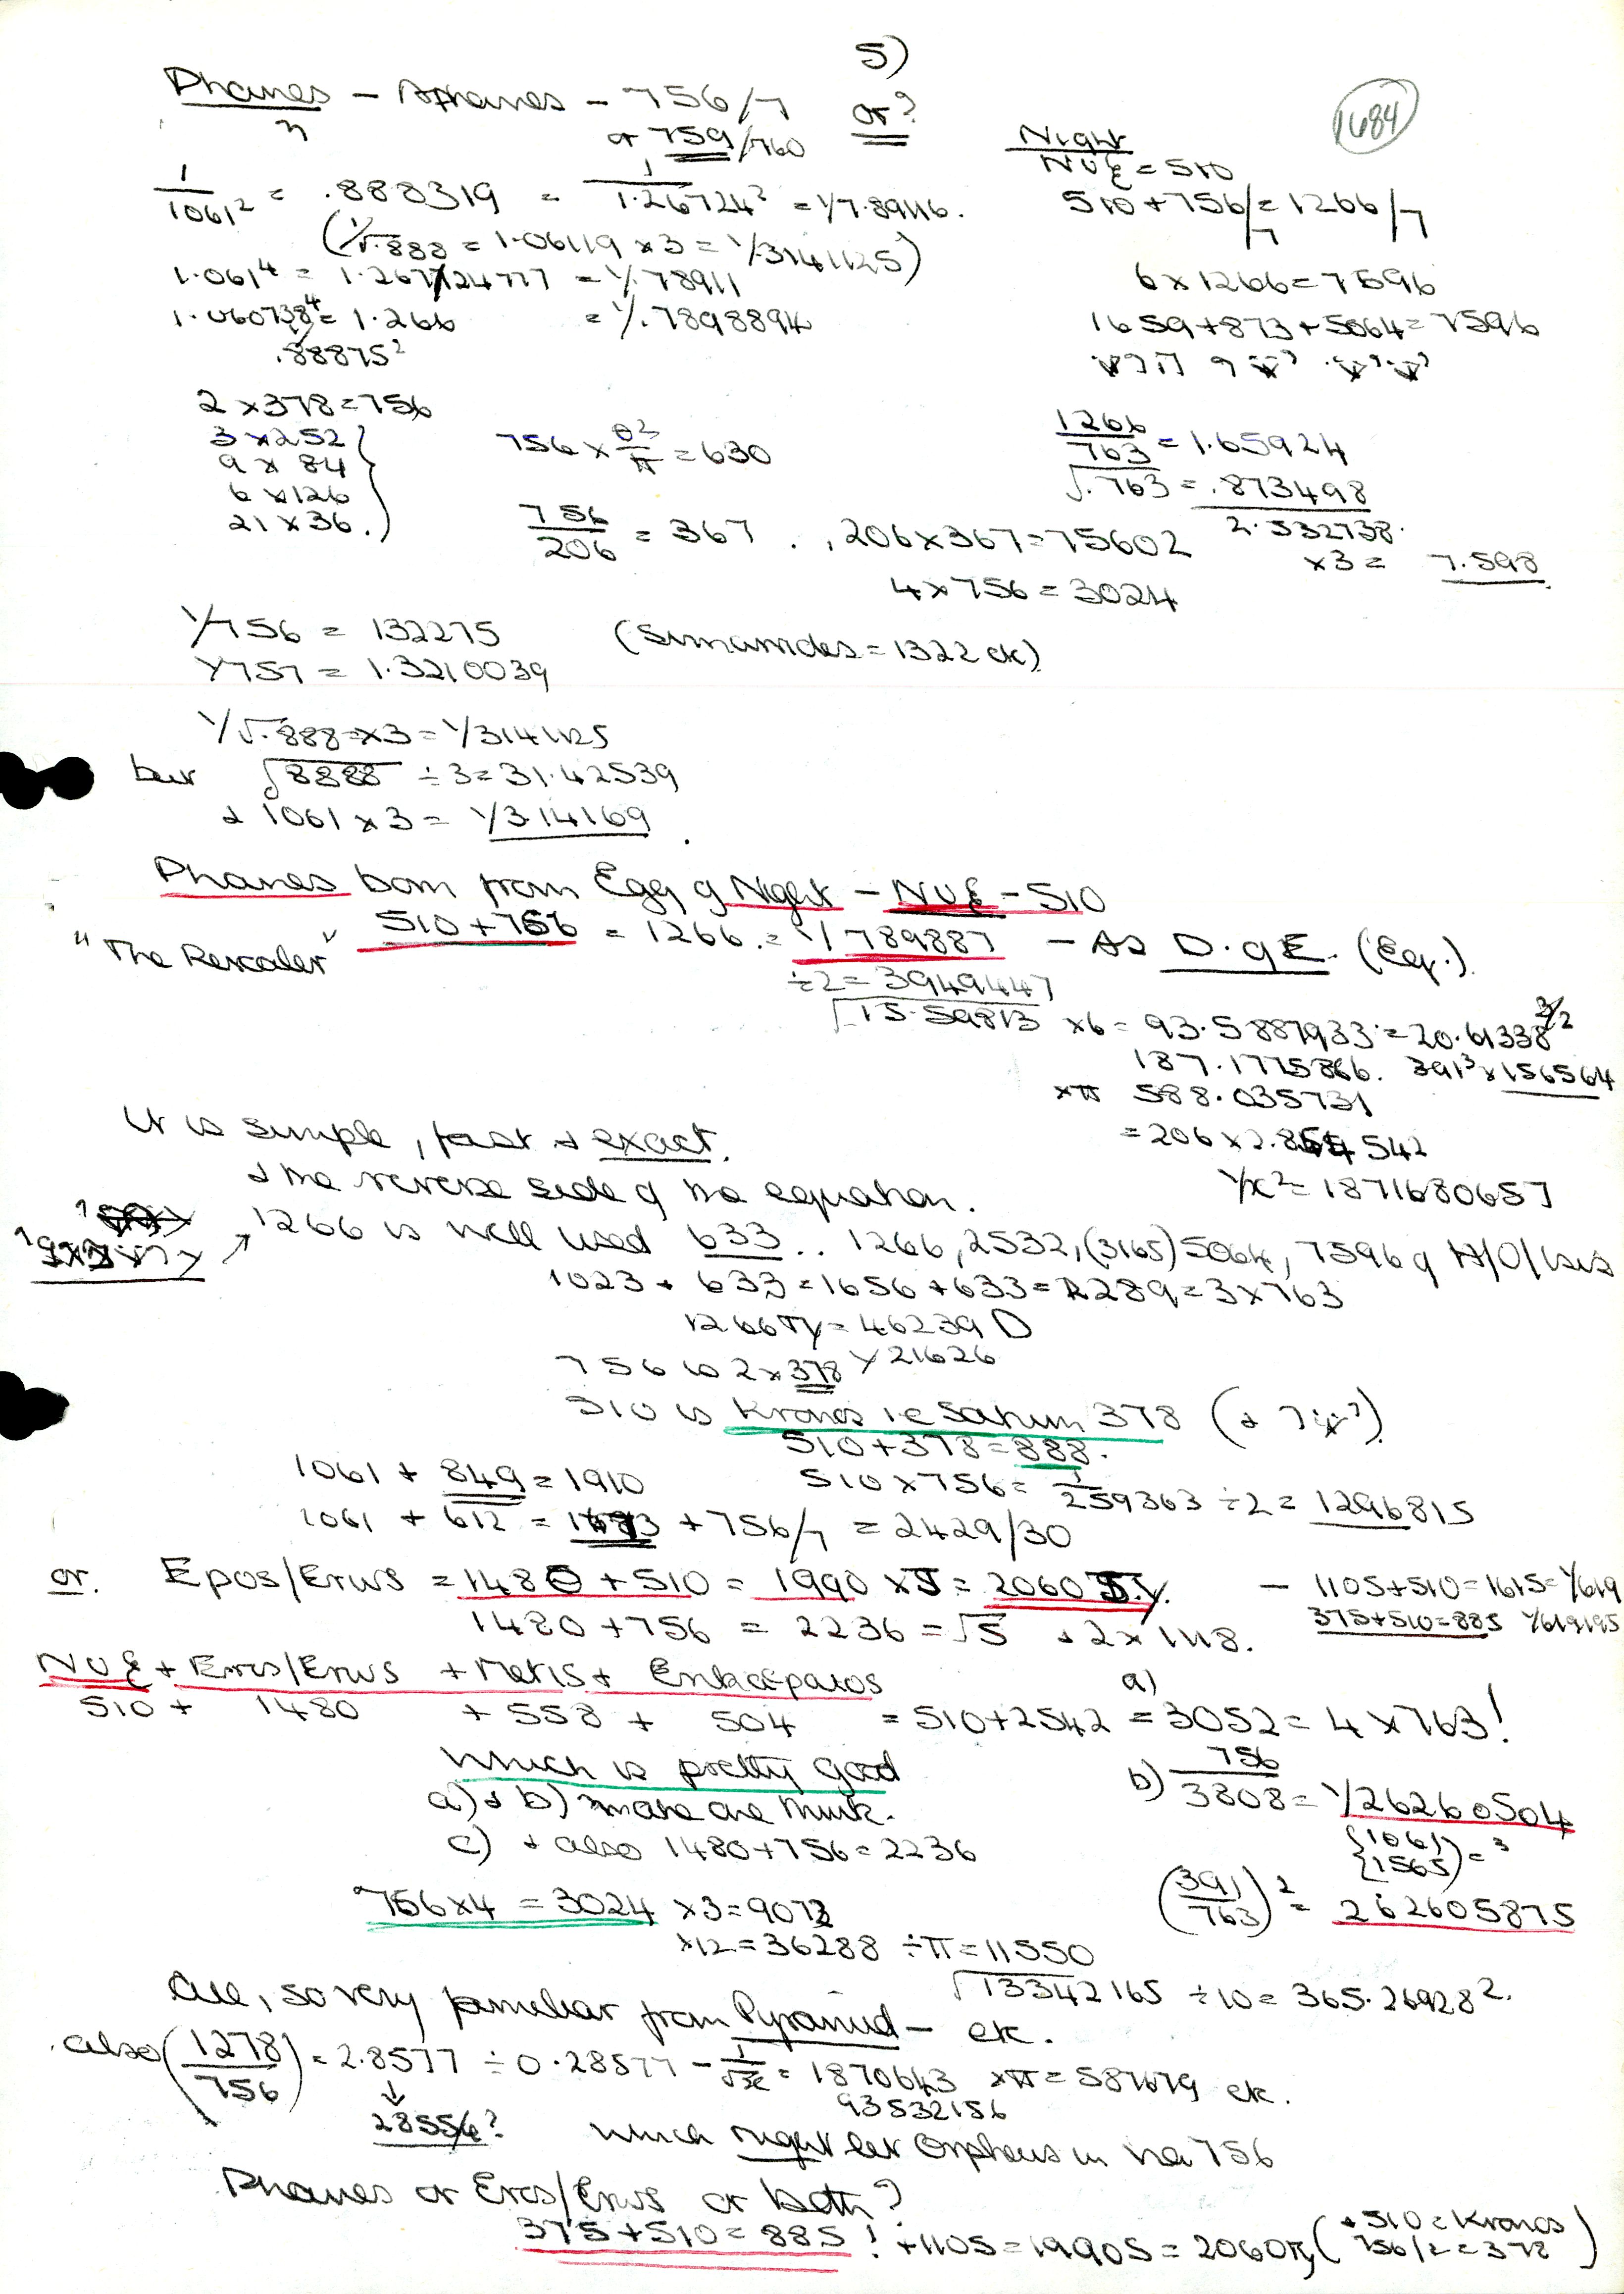 5)
1684
Phanes – Aphanes – 756/7 or?
n or 759/760
Night
NUξ = 510
1/1061² = .888319 = 1/1.26724² = 1/7.89116.
510 + 756/7 = 1266/7
(1/√.888 = 1.06119 x 3 = 1/.3141125)
1.061⁴ = 1.267724777 = 1/.78911
6 x 1266 = 7596
1.060738⁴ = 1.266 = 1/.7898894
1659 + 873 + 5064 = 7596
.88875²
2 x 378 = 756
3 x 252
9 x 84
6 x 126
21 x 36.
756 x θ²/π = 630
1266/763 = 1.65924
√.763 = .873498
2.532738.
x 3 = 7.598.
756/206 = 367 . , 206 x 367 = 75602
4 x 756 = 3024
1/756 = 132275 (Simonides = 1322 etc)
1/757 = 1.3210039
1/√.888 = x 3 = 1/3141125
but √8888 ÷ 3 = 31.42539
+ 1061 x 3 = 1/3.14169.
Phanes born from Egg of Night – NUξ – 510
"The Revealer" 510 + 756 = 1266. = 1/789887 – As D. of E. (Eq.).
÷ 2 = 3949447
√15.59813 x 6 = 93.5887933 = 20.61338 3/2
187.1775866. 391³ x 156564
x π 588.035731
= 206 x 2.854542
1/x² = 1871680657
It is simple, fast + exact.
+ the reverse side of the equation.
1266 is well used 633 .. 1266, 2532, (3165) 5064, 7596 of H/O/Isis
1023 + 633 = 1656 + 633 = 2289 = 3 x 763
1266 πy = 46239 D
756 is 2 x 378 y 21626
510 is Kronos i.e Saturn 378
510 + 378 = 888.
1061 + 849 = 1910
510 x 756 = 1/259363 ÷ 2 = 1296815
1061 + 612 = 1673 + 756/7 = 2429/30
or. Epos/Erws = 1480 + 510 = 1990 x 5 = 2060 – 1105 + 510 = 1615 = 1/619
1480 + 756 = 2236 = √5 + 2 x 1118.
375 + 510 = 885 1/619195
NUξ + Eros/Erws + Metis + Erikepaios
510 + 1480 + 558 + 504 = 510 + 2542 = a) 3052 = 4 x 763!
which is pretty good
a) + b) make one think.
c) + also 1480 + 756 = 2236
b) 756/3808 = 1/26260504
{1061
{1565) = ³
(391/763)² = 262605875
756 x 4 = 3024 x 3 = 9072
x 12 = 36288 ÷ π = 11550
√13342165 ÷ 10 = 365.26928².
All, so very familiar from Pyramid – etc.
also (1278/756) = 2.8577 ÷ 0.28577 – 1/√x = 1870643 x π = 587679 etc.
93532156
↓
28554?
which might let Orpheus in via 756
Phanes or Eros/Erws or both?
375 + 510 = 885! + 1105 = 19905 = 2060πy (+ 510 = Kronos
756/2 = 378)